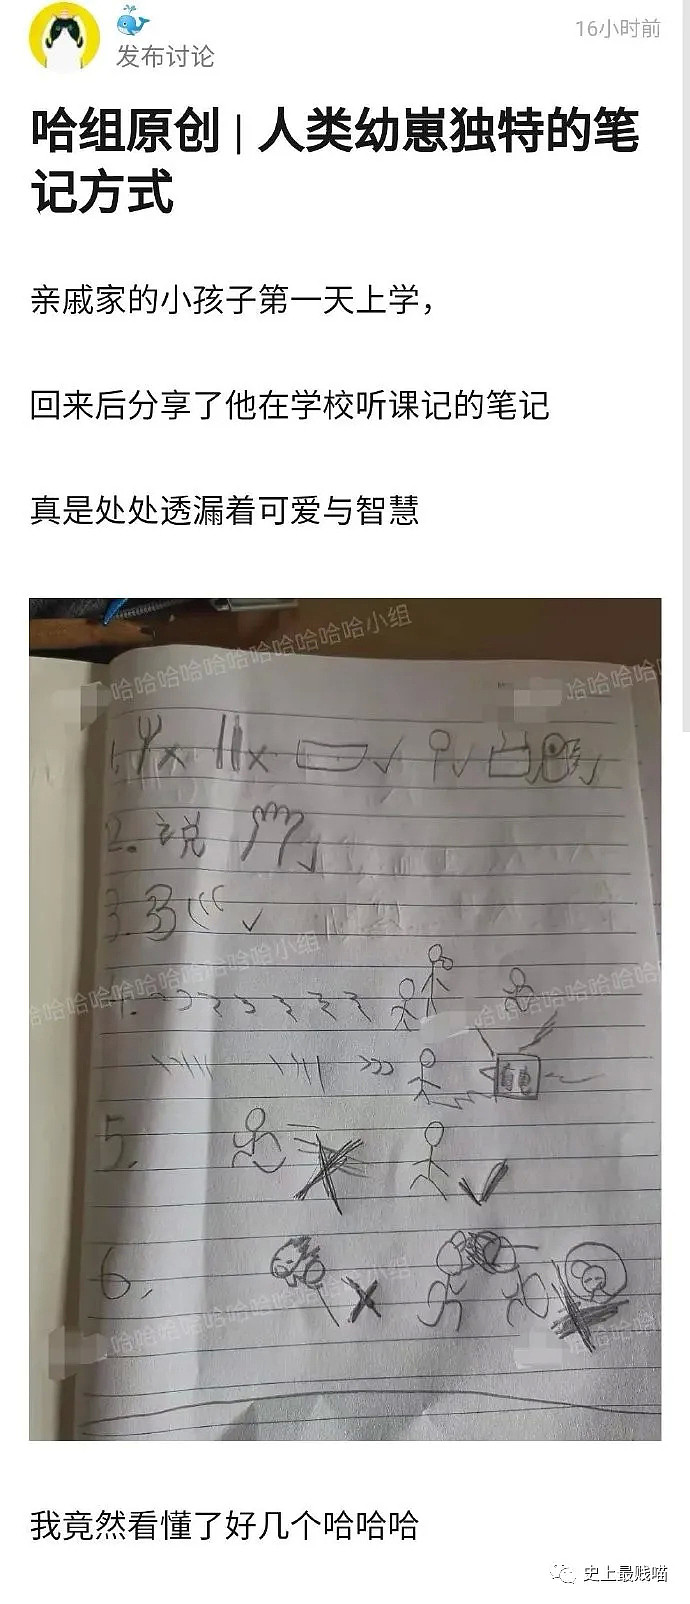 16小时前
发布讨论
哈组原创 | 人类幼崽独特的笔
记方式
亲戚家的小孩子第一天上学，
回来后分享了他在学校听课记的笔记
真是处处透漏着可爱与智慧
哈哈哈哈哈哈哈哈哈哈小组
哈哈哈哈
1.
2. 说
3.
哈哈哈哈哈哈哈哈哈哈小组
4.
5.
6.
哈哈哈哈哈哈哈哈哈哈小组
我竟然看懂了好几个哈哈哈
史上最贱喵